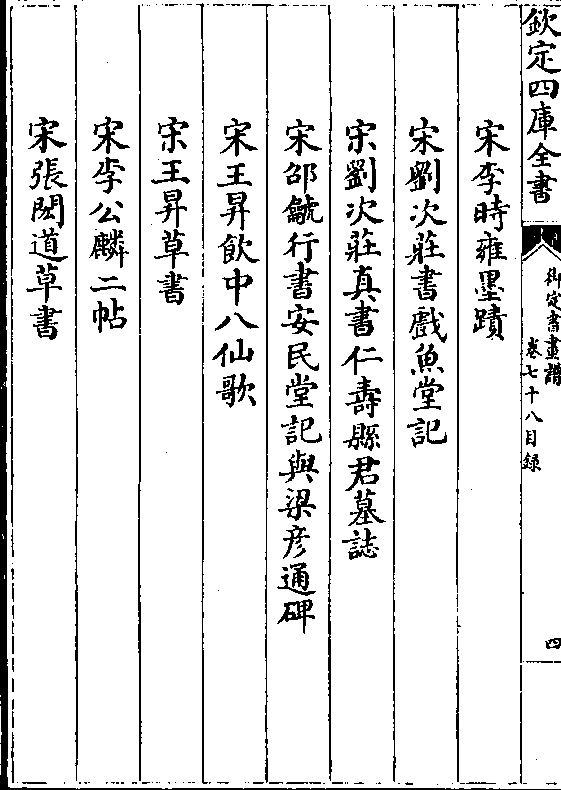 欽定四庫全書
御定書畫譜
卷七十八目録
四
宋李時雍墨蹟
宋劉次莊書戲魚堂記
宋劉次莊真書仁壽縣君墓誌
宋邵䶵行書安民堂記與梁彦通碑
宋王昇飲中八仙歌
宋王昇草書
宋李公麟二帖
宋張閎道草書